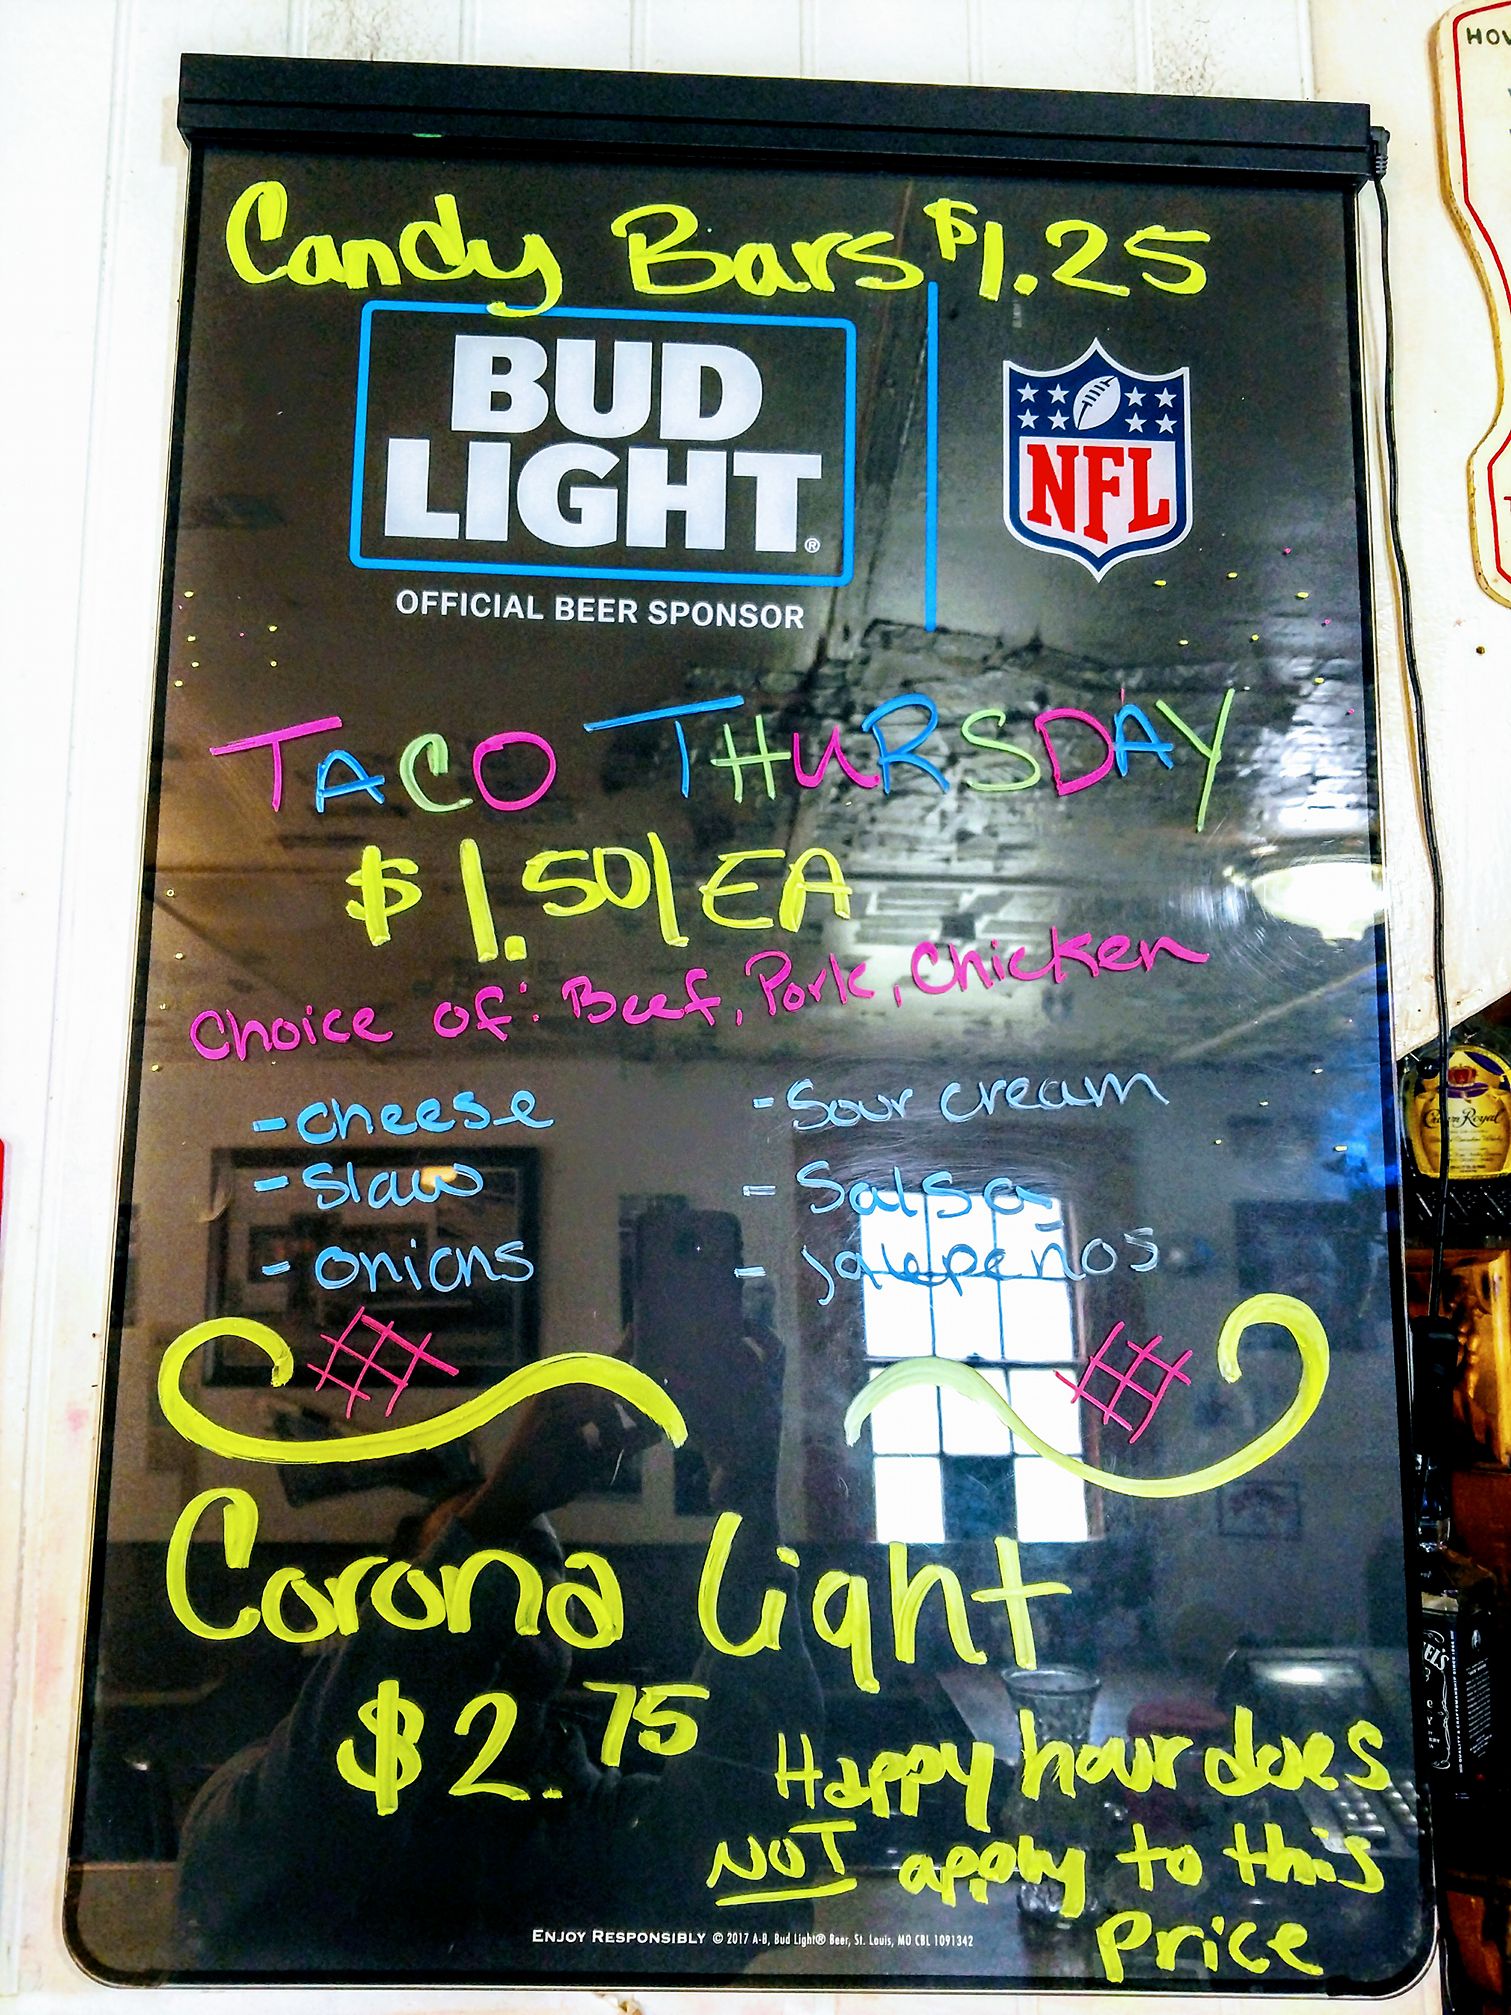 Candy Bars $1.25
BUD
LIGHT®
OFFICIAL BEER SPONSOR
NFL
TACO THURSDAY
$1.50/EA
Choice of: Beef, Pork, Chicken
- cheese
- Slaw
- onions
- Sour cream
- Salsa
- jalepeños
Corona Light
$2.75
Happy hour does
NOT apply to this
Price
ENJOY RESPONSIBLY © 2017 A-B, Bud Light® Beer, St. Louis, MO CBL 1091342
HOW
Crown Royal